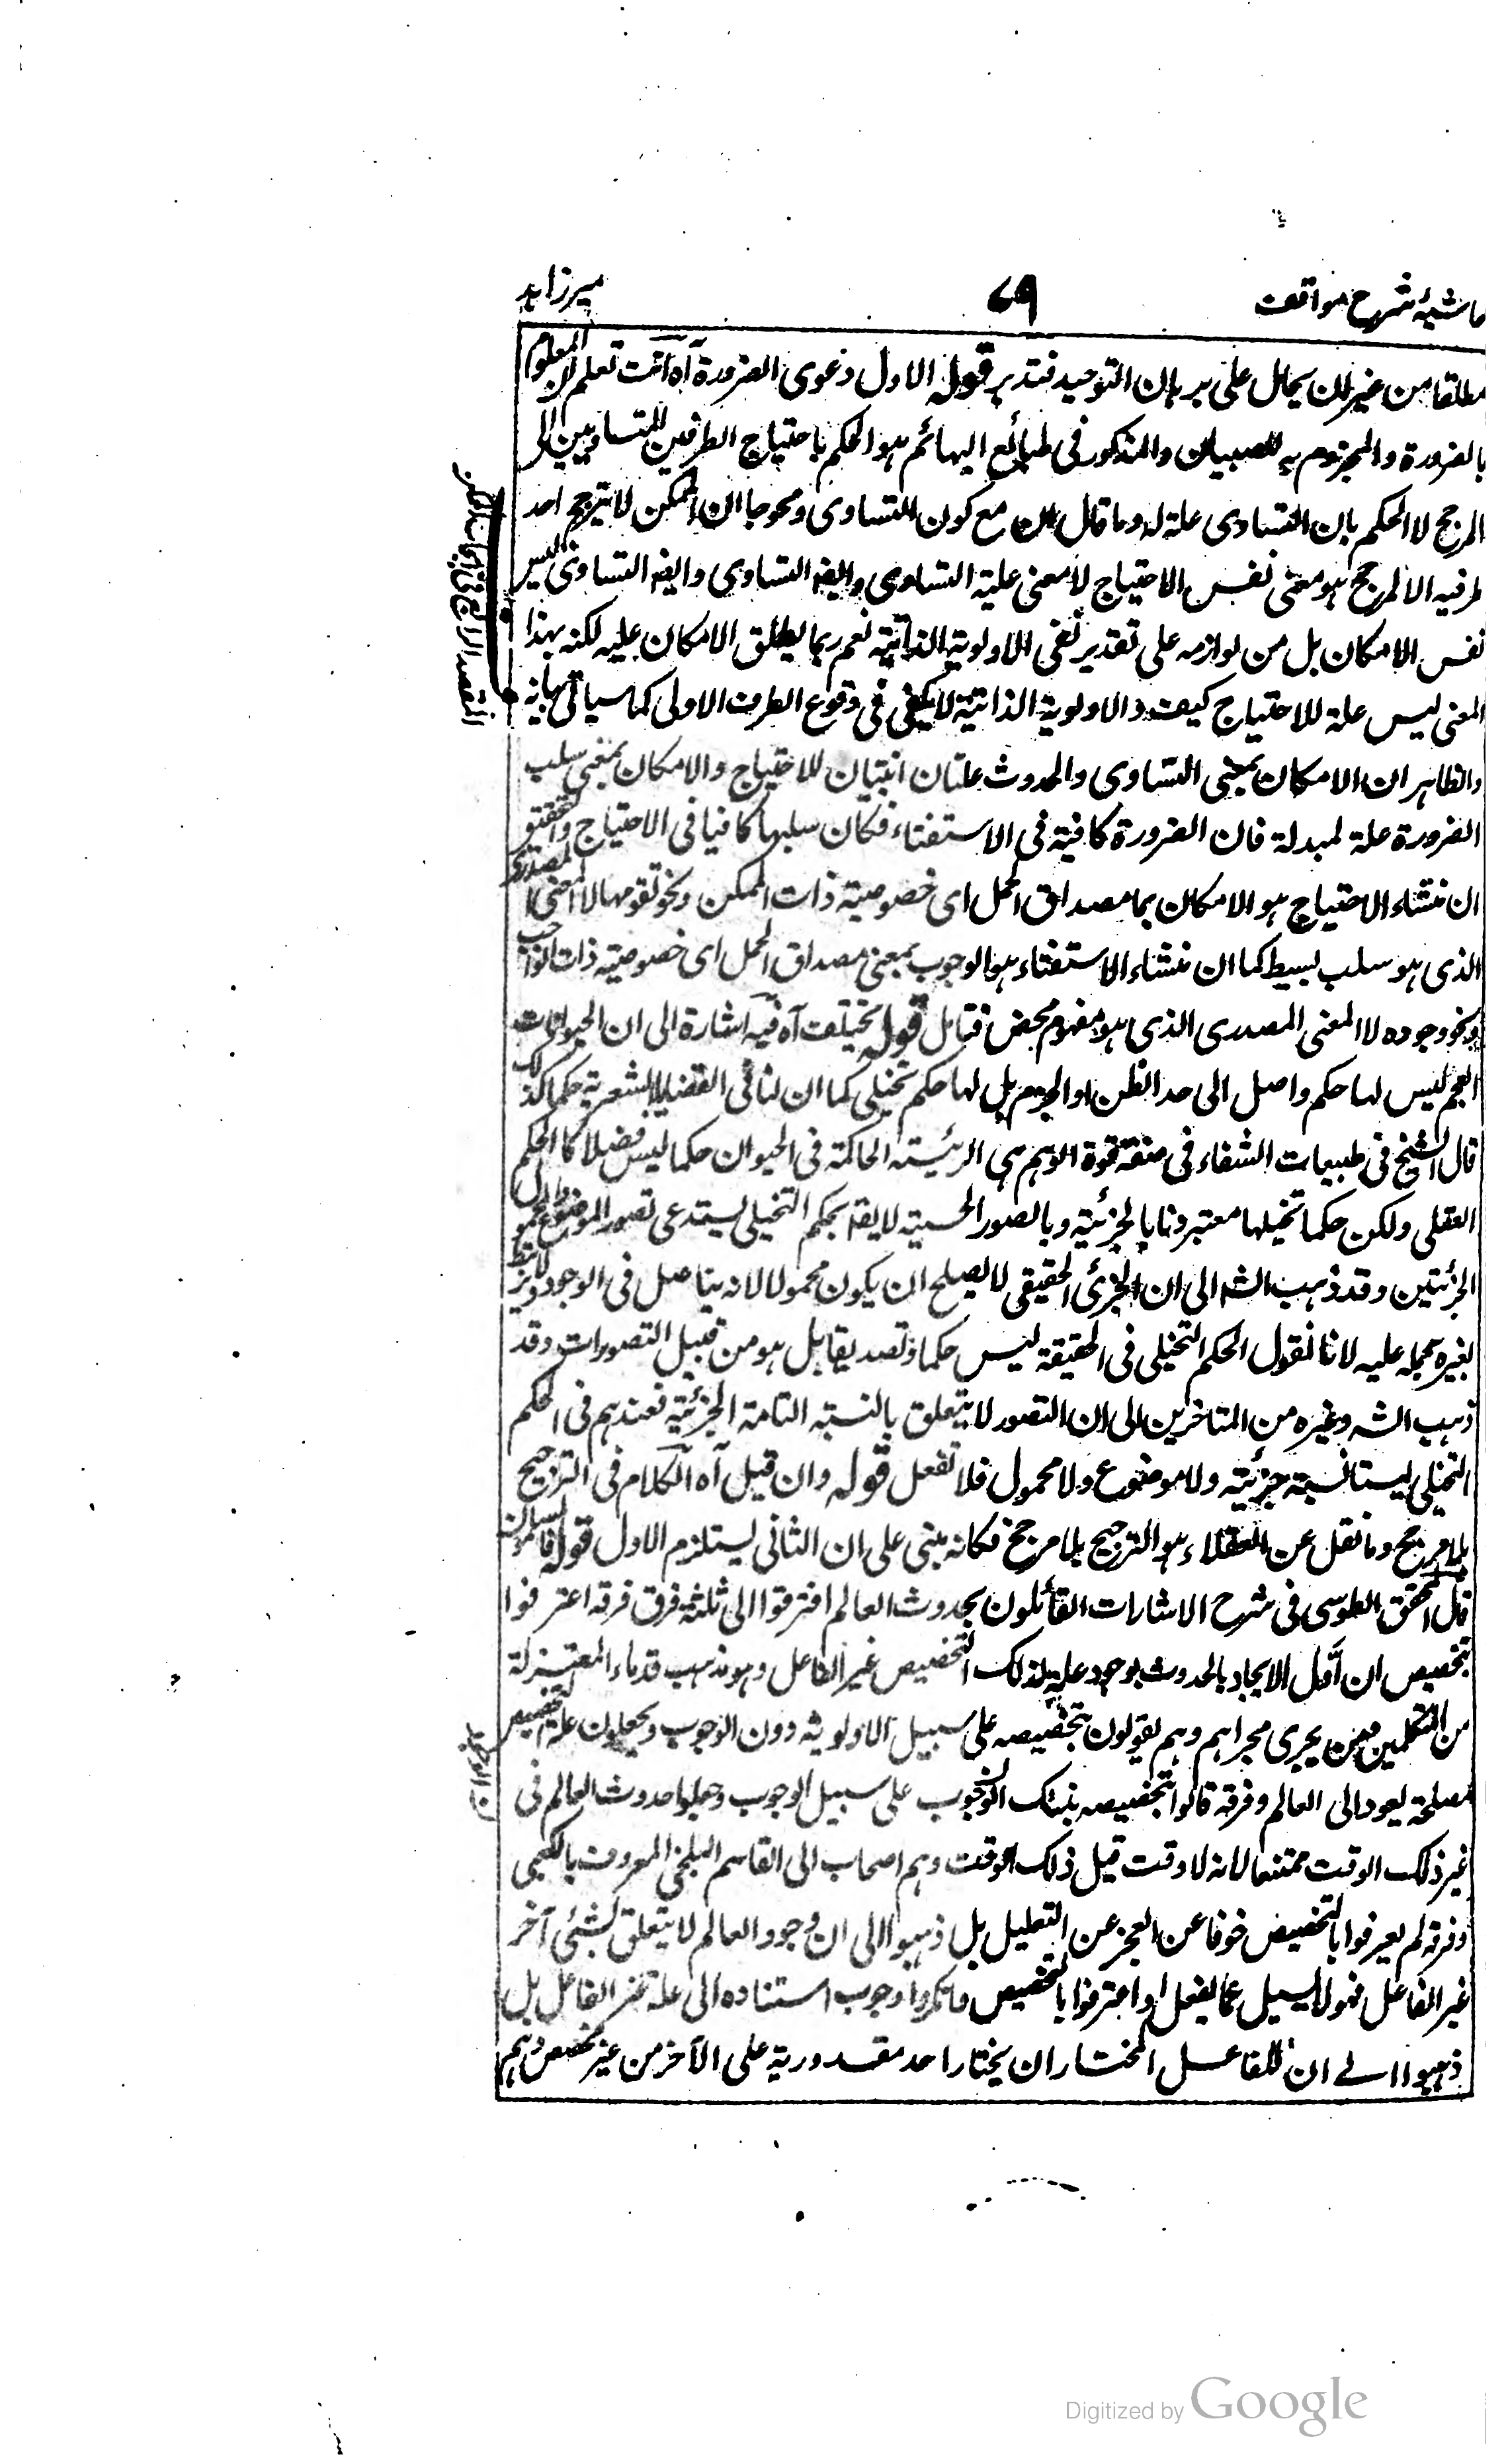 حاشیۂ شرح مواقف ٦٩ میرزاہد
مطلقا من غیر ان یحال علی برہان التوحید فتدبر قولہ الاول دعوی الضرورة آہ انت تعلم ان المعلوم
بالضرورة والمجزوم بہ للصبیان والمذکور فی طبائع البہائم ہو الحکم باحتیاج الطرفین المتساویین الی
المرجح لا الحکم بان التساوی علة لہ وما قال ان مع کون التساوی ومحوجا ان الممکن لا یترجح احد
طرفیہ الا لمرجح ہو معنی نفس الاحتیاج لا معنی علیة التساوی وایضہ التساوی وایضہ التساوی لیس
نفس الامکان بل من لوازمہ علی تقدیر نفی الاولویة الذاتیة نعم ربما یطلق الامکان علیہ لکنہ بہذا
المعنی لیس علة للاحتیاج کیف والاولویة الذاتیة لا یکفی فی وقوع الطرف الاولی کما سیاتی بیانہ
والظاہر ان الامکان بمعنی التساوی والحدوث علتان انیتان للاحتیاج والامکان بمعنی سلب
الضرورة علة لمبدلة فان الضرورة کافیة فی الاستغناء فکان سلبہا کافیا فی الاحتیاج والتحقیق
ان منشاء الاحتیاج ہو الامکان بما مصداق الحمل ای خصوصیة ذات الممکن ونحو تقومہا لا المعنی المصدری
الذی ہو سلب بسیط کما ان منشاء الاستغناء ہو الوجوب بمعنی مصداق الحمل ای خصوصیة ذات الواجب
ونحو وجودہ لا المعنی المصدری الذی ہو مفہوم محض فتامل قولہ مختلف آہ فیہ اشارة الی ان الحیوانات
العجم لیس لہا حکم واصل الی حد الظن او الجزم بل لہا حکم تخیلی کما ان لنا فی القضایا الشعریة حکما کذلک
قال الشیخ فی طبیعیات الشفاء فی صفة قوة الوہم ہی الرئیسة الحاکمة فی الحیوان حکما لیس فصلا کالحکم
العقلی ولکن حکما تخیلیا مقرونا بالجزئیة وبالصور الحسیة لا یقہ الحکم التخیلی یستدعی تصور الموضوع والمحمول
الجزئیین وقد ذہب الشہ الی ان الجزئی الحقیقی لا یصلح ان یکون محمولا لانہ یتاصل فی الوجود ولا یرتبط
بغیرہ بحملہ علیہ لانا نقول الحکم التخیلی فی الحقیقة لیس حکما وتصدیقا بل ہو من قبیل التصورات وقد
ذہب الشہ وغیرہ من المتاخرین الی ان التصور لا یتعلق بالنسبة التامة الجزئیة فعندہم فی الحکم
التخیلی لیست نسبة جزئیة ولا موضوع ولا محمول فلا تفعل قولہ وان قیل آہ الکلام فی الترجح
بلا مرجح وما نقل عن العقلاء ہو الترجیح بلا مرجح فکانہ بنی علی ان الثانی یستلزم الاول قولہ فالمسلمون
قال المحقق الطوسی فی شرح الاشارات القائلون بحدوث العالم افترقوا الی ثلثة فرق فرقة اعترفوا
بتخصیص ان اول الایجاد بالحدوث بوجود علة لذلک التخصیص غیر الفاعل وہو مذہب قدماء المعتزلة
من المتکلمین ومن یجری مجراہم وہم یقولون بتخصیصہ علی سبیل الاولویة دون الوجوب ویجعلون علة التخصیص
مصلحة یعود الی العالم وفرقة قالوا بتخصیصہ بذلک الوجوب علی سبیل الوجوب وجعلوا حدوث العالم فی
غیر ذلک الوقت ممتنعا لانہ لا وقت قبل ذلک الوقت وہم اصحاب ابی القاسم البلخی المعروف بالکعبی
وفرقة لم یعرفوا بالتخصیص خوفا عن العجز عن التعلیل بل ذہبوا الی ان وجود العالم لا یتعلق بشئی آخر
غیر الفاعل فہو لا یسئل عما یفعل او اعترفوا بالتخصیص وانکروا وجوب استنادہ الی علة غیر الفاعل بل
ذہبوا الی ان للفاعل المختار ان یختار احد مقدوریہ علی الآخر من غیر مخصص وہم